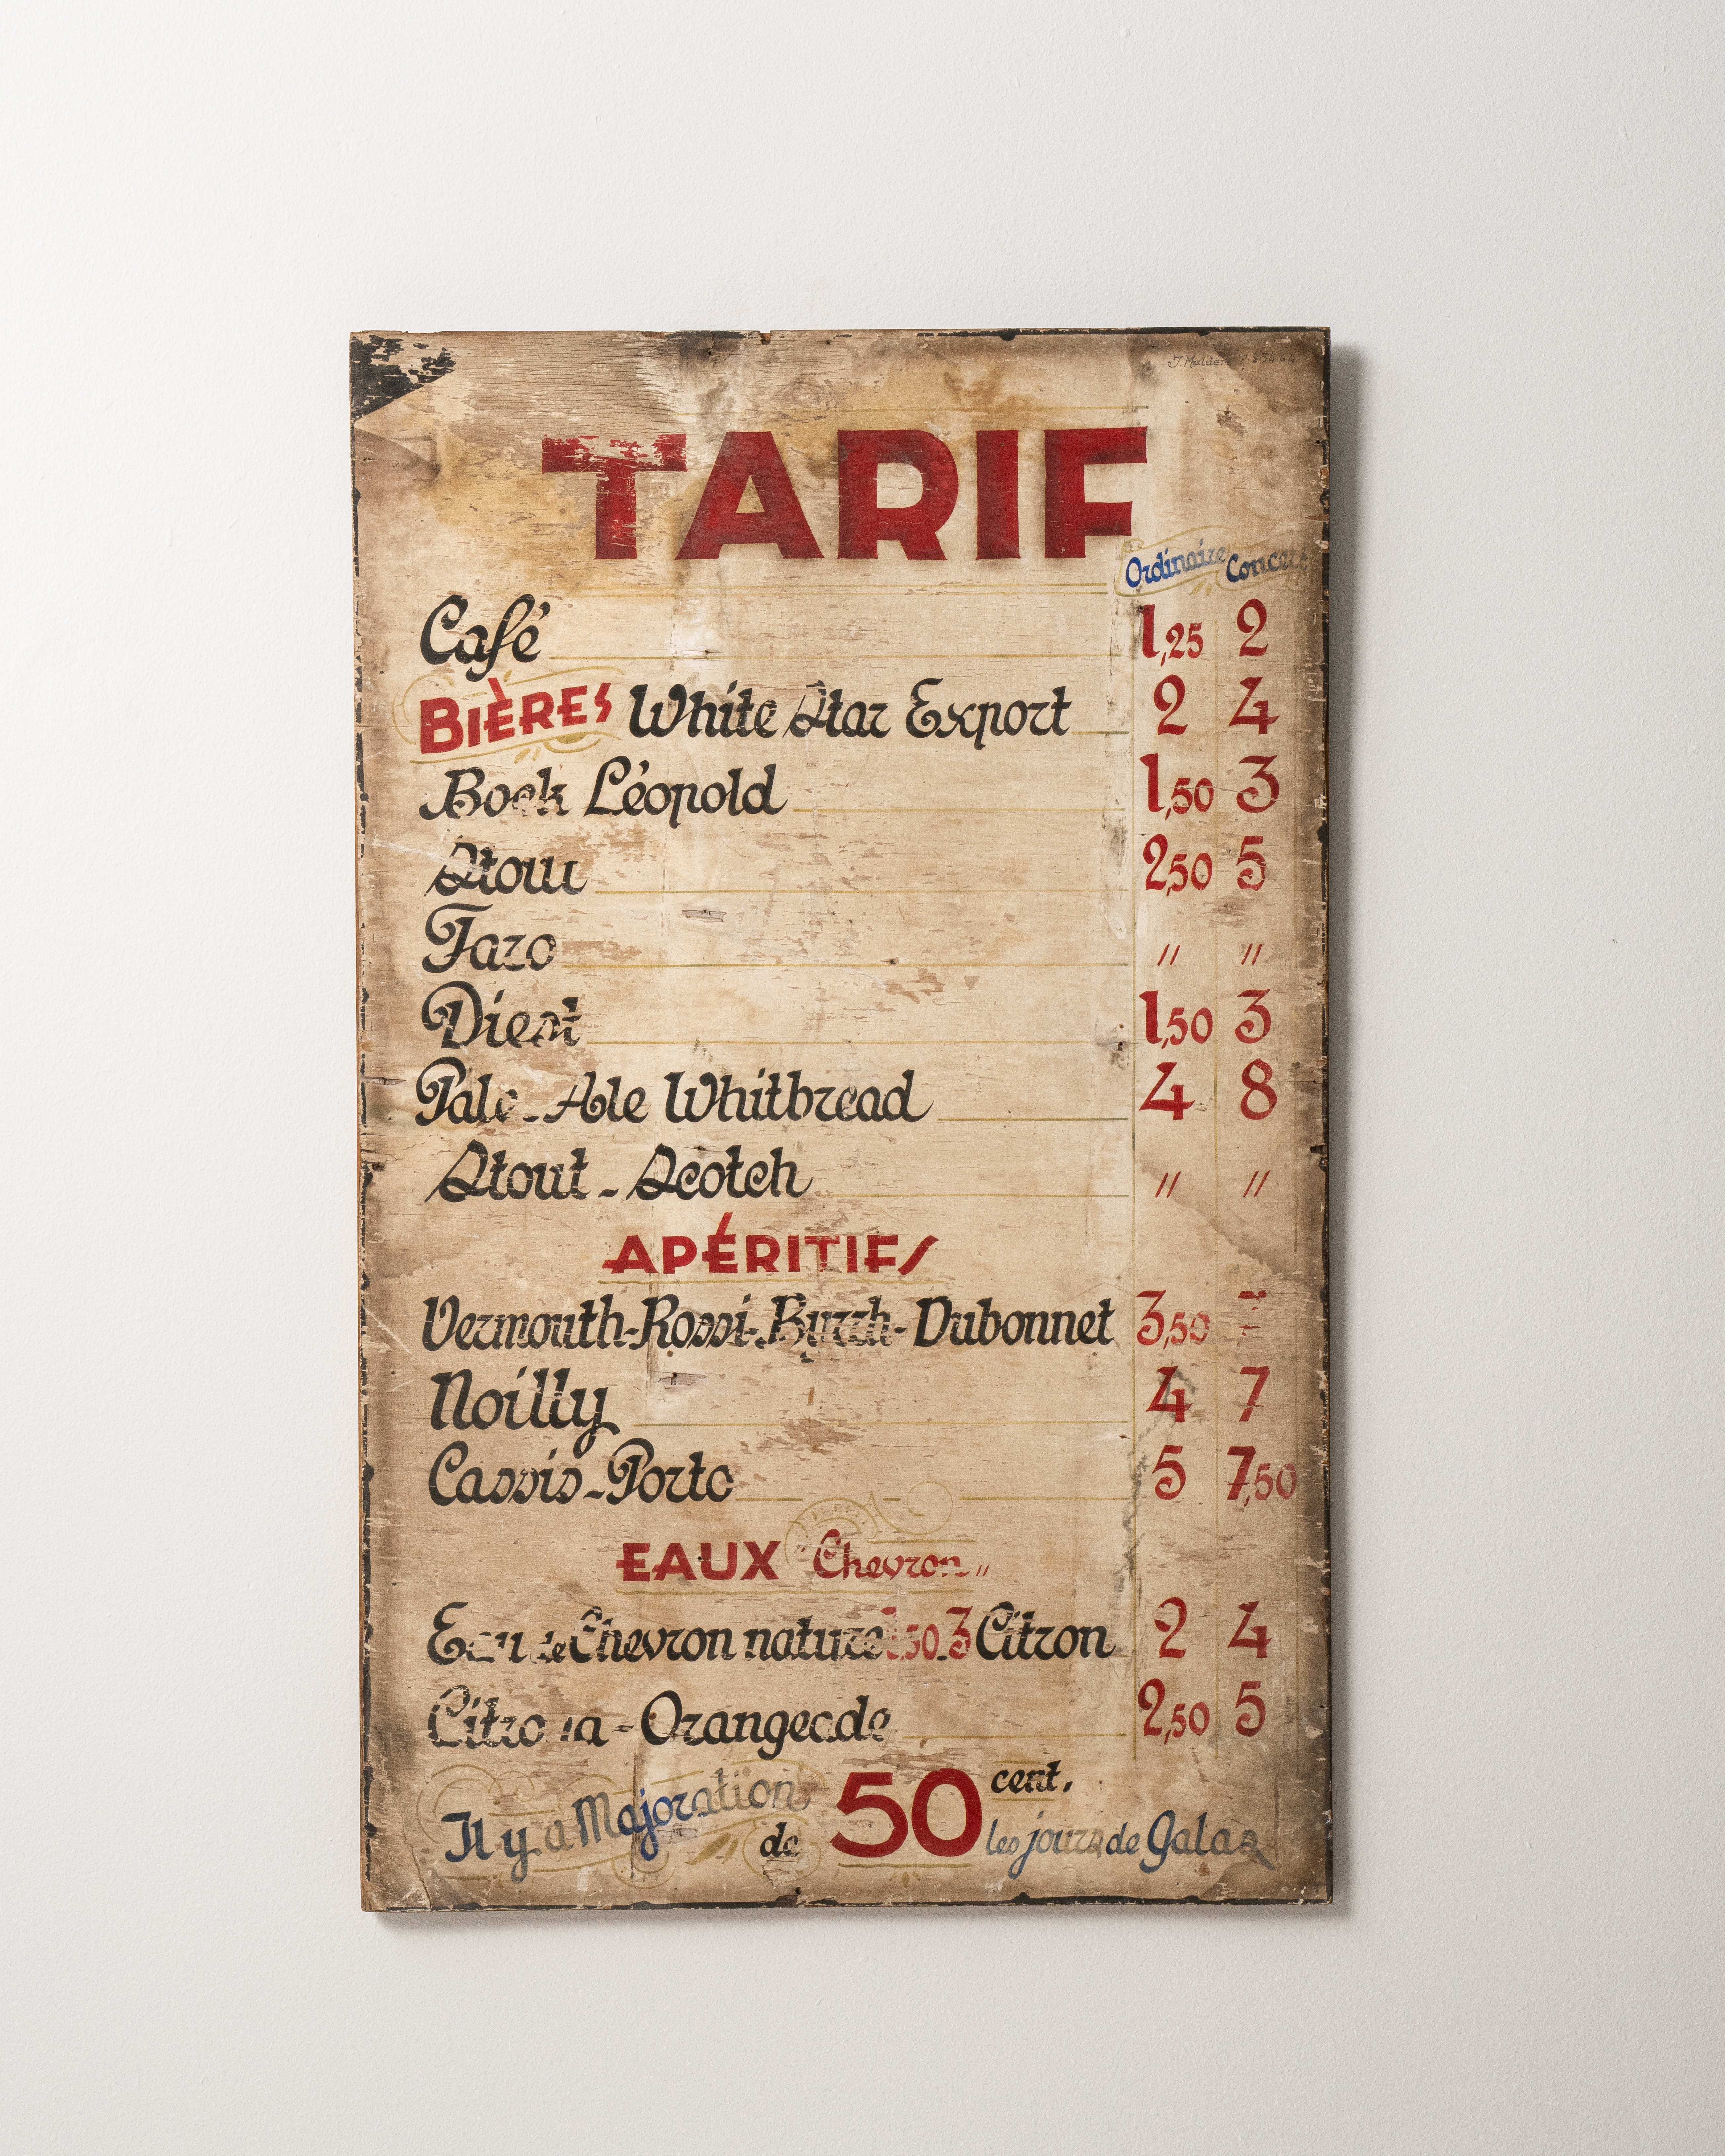 J. Mulder
TARIF
Ordinaire Concert
Café 1,25 2
BIÈRES White Star Export 2 4
Bock Léopold 1,50 3
Stout 2,50 5
Faro " "
Diest 1,50 3
Pale-Ale Whitbread 4 8
Stout - Scotch " "
APÉRITIFS
Vermouth-Rossi-Byrrh-Dubonnet 3,50
Noilly 4 7
Cassis-Porto 5 7,50
EAUX "Chevron"
Eau de Chevron nature 1,50-3 Citron 2 4
Citro a - Orangeade 2,50 5
Il y a Majoration de 50 cent. les jours de Galas